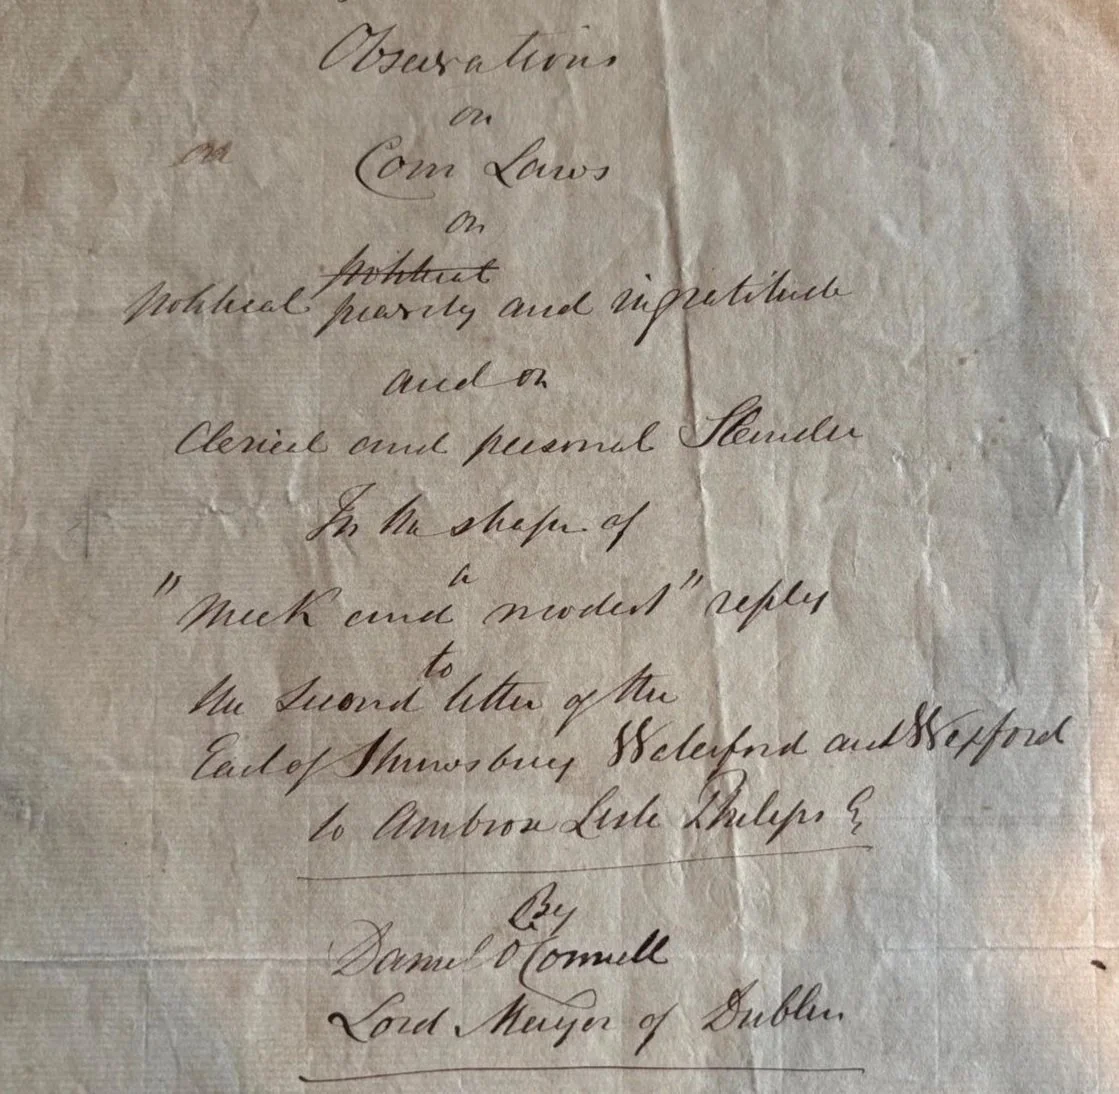 Observations
on
on
Corn Laws
on
political
political pravity and ingratitude
and on
Clerical and personal Slander
In the shape of
a
"Meek and modest" reply
to
the second letter of the
Earl of Shrewsbury Waterford and Wexford
to Ambrose Lisle Philips E
By
Daniel O'Connell
Lord Mayor of Dublin